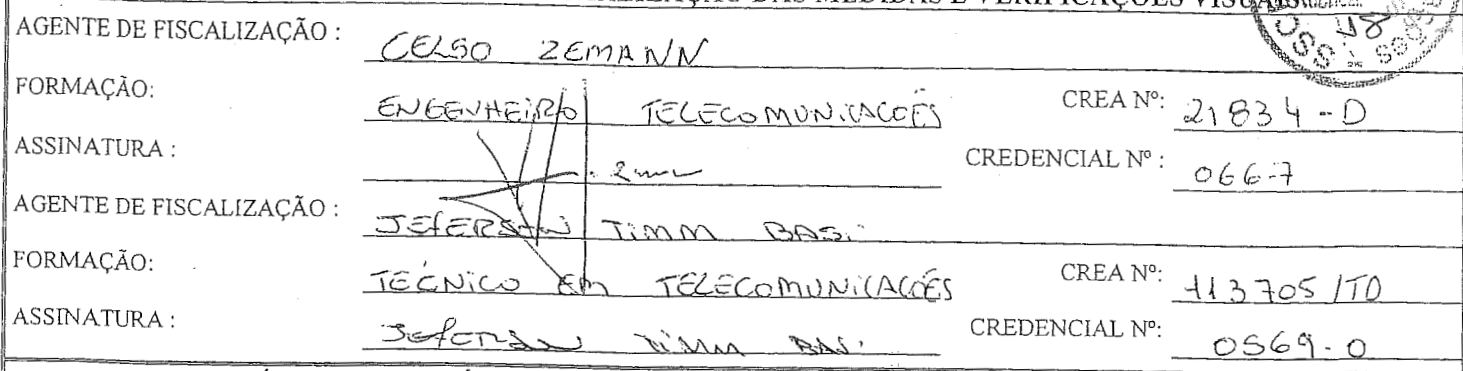 DAS MEDIDAS E VERIFICAÇÕES VISUAIS
48
AGENTE DE FISCALIZAÇÃO : CELSO ZEMANN
FORMAÇÃO: ENGENHEIRO TELECOMUNICACOES CREA Nº: 21834-D
ASSINATURA : CREDENCIAL Nº : 066-7
AGENTE DE FISCALIZAÇÃO : JEFERSON TIMM BASI
FORMAÇÃO: TÉCNICO EM TELECOMUNICACÕES CREA Nº: 113705/TD
ASSINATURA : Jeferson Timm BASI CREDENCIAL Nº: 0569-0